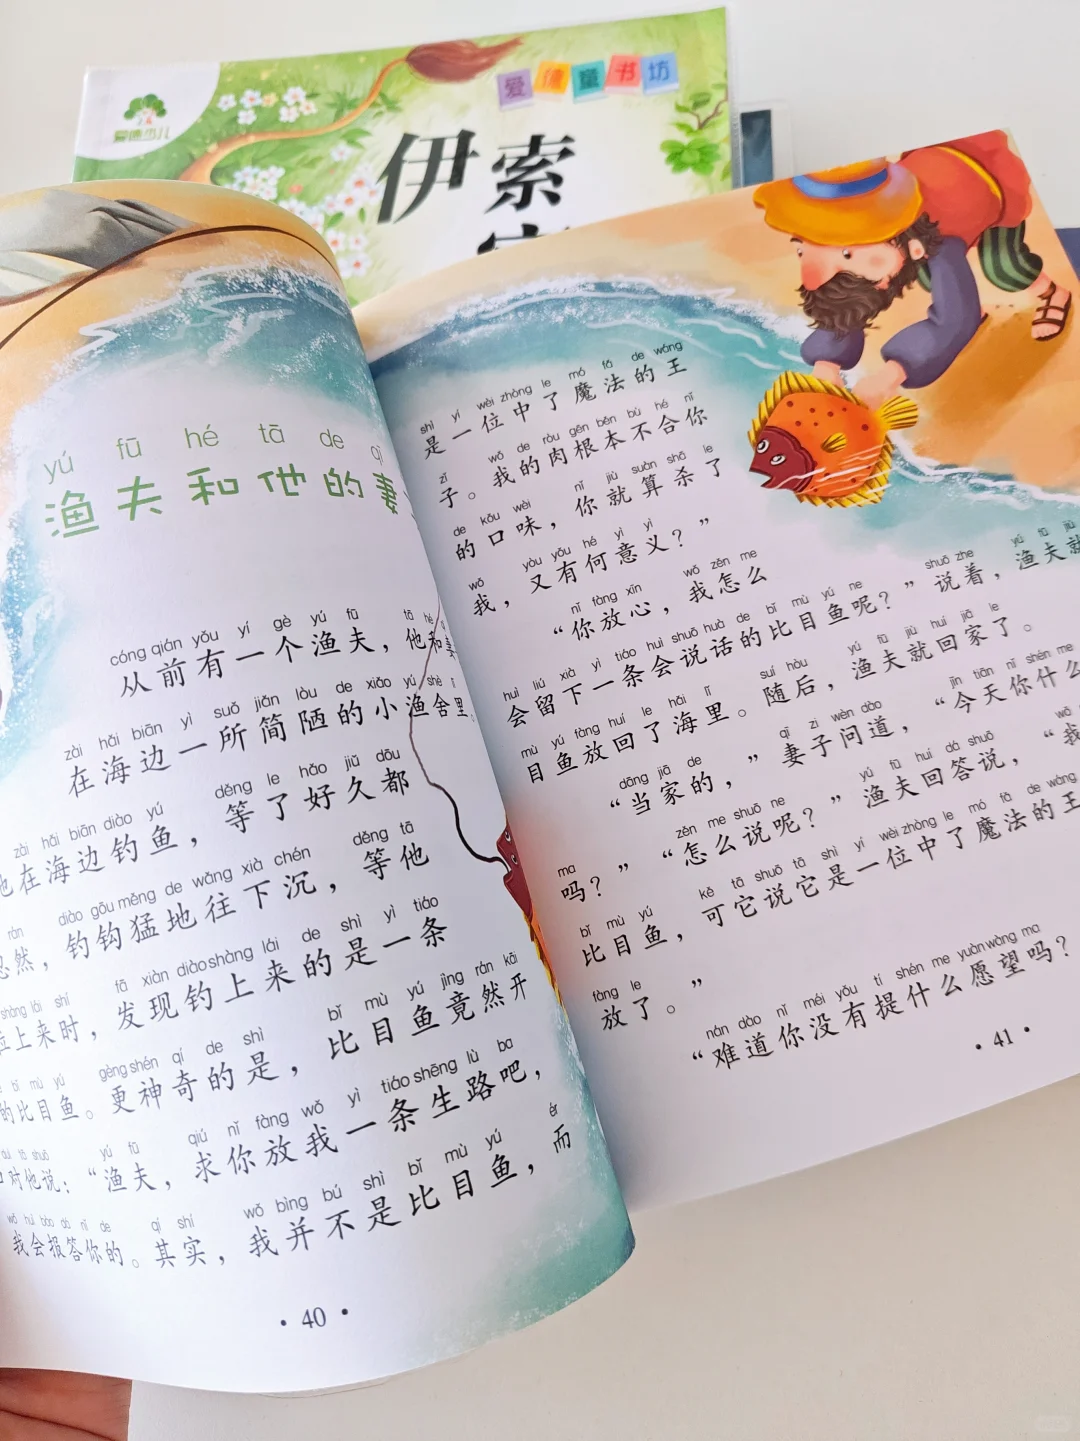 爱德少儿
爱德童书坊
伊索
yú fū hé tā de qī
渔夫和他的妻
cóng qián yǒu yí gè yú fū tā hé
从前有一个渔夫，他和妻
zài hǎi biān yì suǒ jiǎn lòu de xiǎo yú shè lǐ
在海边一所简陋的小渔舍里
zài hǎi biān diào yú děng le hǎo jiǔ dōu
他在海边钓鱼，等了好久都
rán diào gōu měng de wǎng xià chén děng tā
忽然，钓钩猛地往下沉，等他
shàng lái shí fā xiàn diào shàng lái de shì yì tiáo
上来时，发现钓上来的是一条
bǐ mù yú gèng shén qí de shì bǐ mù yú jìng rán kāi
的比目鱼。更神奇的是，比目鱼竟然开
duì tā shuō yú fū qiú nǐ fàng wǒ yì tiáo shēng lù ba
口对他说：“渔夫，求你放我一条生路吧，
wǒ huì bào dá nǐ de qí shí wǒ bìng bú shì bǐ mù yú ér
我会报答你的。其实，我并不是比目鱼，而
·40·
shì yí wèi zhòng le mó fǎ de wáng
是一位中了魔法的王
zǐ wǒ de ròu gēn běn bù hé nǐ
子。我的肉根本不合你
de kǒu wèi nǐ jiù suàn shā le
的口味，你就算杀了
wǒ yòu yǒu hé yì yì
我，又有何意义？”
nǐ fàng xīn wǒ zěn me
“你放心，我怎么
huì liú xià yì tiáo huì shuō huà de bǐ mù yú ne shuō zhe yú fū jiù
会留下一条会说话的比目鱼呢？”说着，渔夫就
mù yú fàng huí le hǎi lǐ suí hòu yú fū jiù huí jiā le
目鱼放回了海里。随后，渔夫就回家了。
dāng jiā de qī zi wèn dào jīn tiān nǐ shén me
“当家的，”妻子问道，“今天你什么
ma zěn me shuō ne yú fū huí dá shuō wǒ
吗？”“怎么说呢？”渔夫回答说，“我
bǐ mù yú kě tā shuō tā shì yí wèi zhòng le mó fǎ de wáng
比目鱼，可它说它是一位中了魔法的王
fàng le
放了。”
nán dào nǐ méi yǒu tí shén me yuàn wàng ma
“难道你没有提什么愿望吗？
·41·